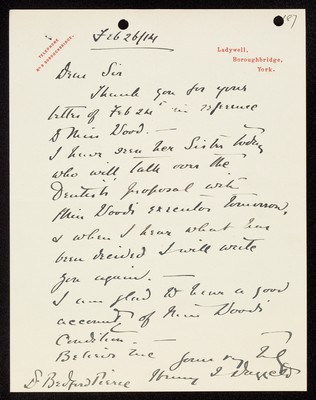 187
TELEPHONE
BOROUGHBRIDGE.
Feb 26/14
Ladywell,
Boroughbridge,
York.
Dear Sir
Thank you for your
letter of Feb 24th in reference
to Miss Wood. —
I have seen her Sister today
who will talk over the
Dentist's proposal with
Miss Wood's executor tomorrow,
& when I hear what has
been decided I will write
you again. —
I am glad to hear a good
account of Miss Wood's
Condition. —
Believe me yours very
Dr Bedford Pierce Henry J Daggett